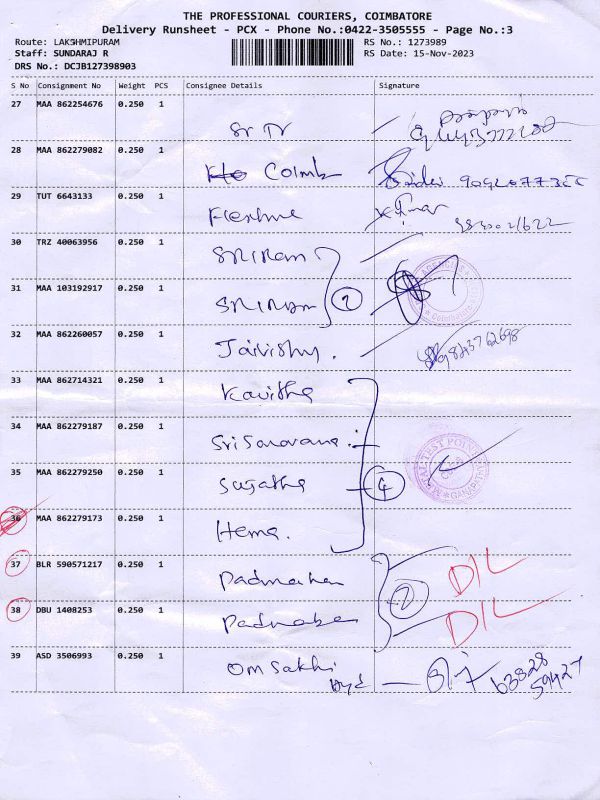 THE PROFESSIONAL COURIERS, COIMBATORE
Delivery Runsheet - PCX - Phone No.:0422-3505555 - Page No.:3
Route: LAKSHMIPURAM
RS No.: 1273989
Staff: SUNDARAJ R
RS Date: 15-Nov-2023
DRS No.: DCJB127398903
S No Consignment No Weight PCS Consignee Details Signature
27 MAA 862254676 0.250 1
28 MAA 862279082 0.250 1 Coimb
29 TUT 6643133 0.250 1 Kumar
30 TRZ 40063956 0.250 1 SRIRam
31 MAA 103192917 0.250 1 SRIRam 2
32 MAA 862260057 0.250 1 Jaivishnu. 9843762698
33 MAA 862714321 0.250 1 Kavitha
34 MAA 862279187 0.250 1 Sri Saravana
35 MAA 862279250 0.250 1 Sujatha 4
36 MAA 862279173 0.250 1 Hema.
37 BLR 590571217 0.250 1 D/L
38 DBU 1408253 0.250 1 2 D/L
39 ASD 3506993 0.250 1 Om Sakhi